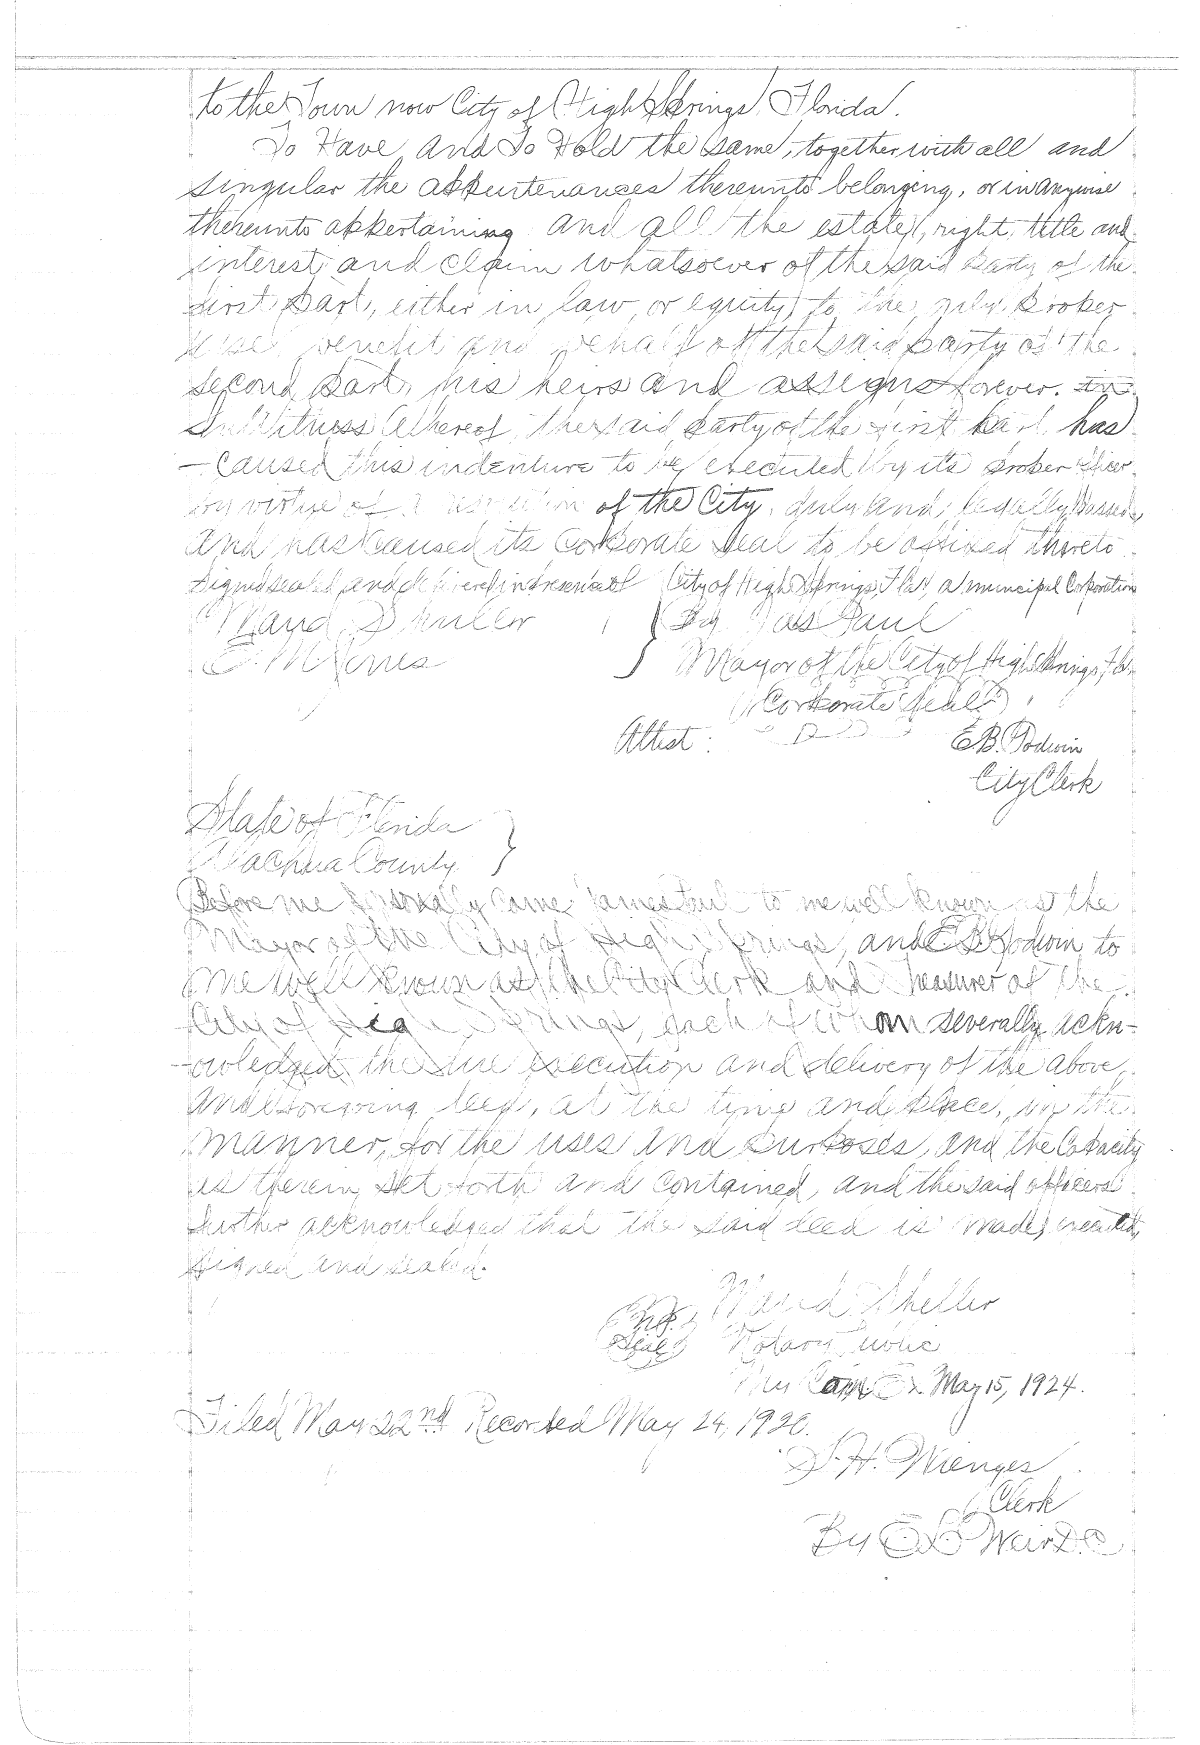 to the Town now City of High Springs, Florida.
To Have and To Hold the same, together with all and
singular the appurtenances thereunto belonging, or in anywise
thereunto appertaining and all the estate, right, title and
interest and claim whatsoever of the said party of the
first part, either in law or equity, to the only proper
use, benefit and behalf of the said party of the
second part, his heirs and assigns forever. In
In Witness Whereof, the said party of the first part has
caused this indenture to be executed by its proper officer
by virtue of a resolution of the City, duly and legally passed,
and has caused its Corporate Seal to be affixed thereto
Signed sealed and delivered in presence of City of High Springs, Fla, a municipal Corporation
Maud Sheller By Jas Paul
E. M. Jones Mayor of the City of High Springs, Fla.
(Corporate Seal)
Attest: E.B. Godwin
City Clerk
State of Florida
Alachua County
Before me personally came James Paul to me well known as the
Mayor of the City of High Springs, and E B Godwin to
me well known as the City Clerk and Treasurer of the
City of High Springs, each of whom severally ackn-
owledged the due execution and delivery of the above
and foregoing deed, at the time and place, in the
manner, for the uses and purposes, and the Capacity
as therein set forth and contained, and the said officers
further acknowledged that the said deed is made, executed,
signed and sealed.
Maud Sheller
N.P. Seal Notary Public
My Com Ex. May 15, 1924.
Filed May 22nd Recorded May 24, 1920.
S. H. Wienges
Clerk
By E L Weir D.C